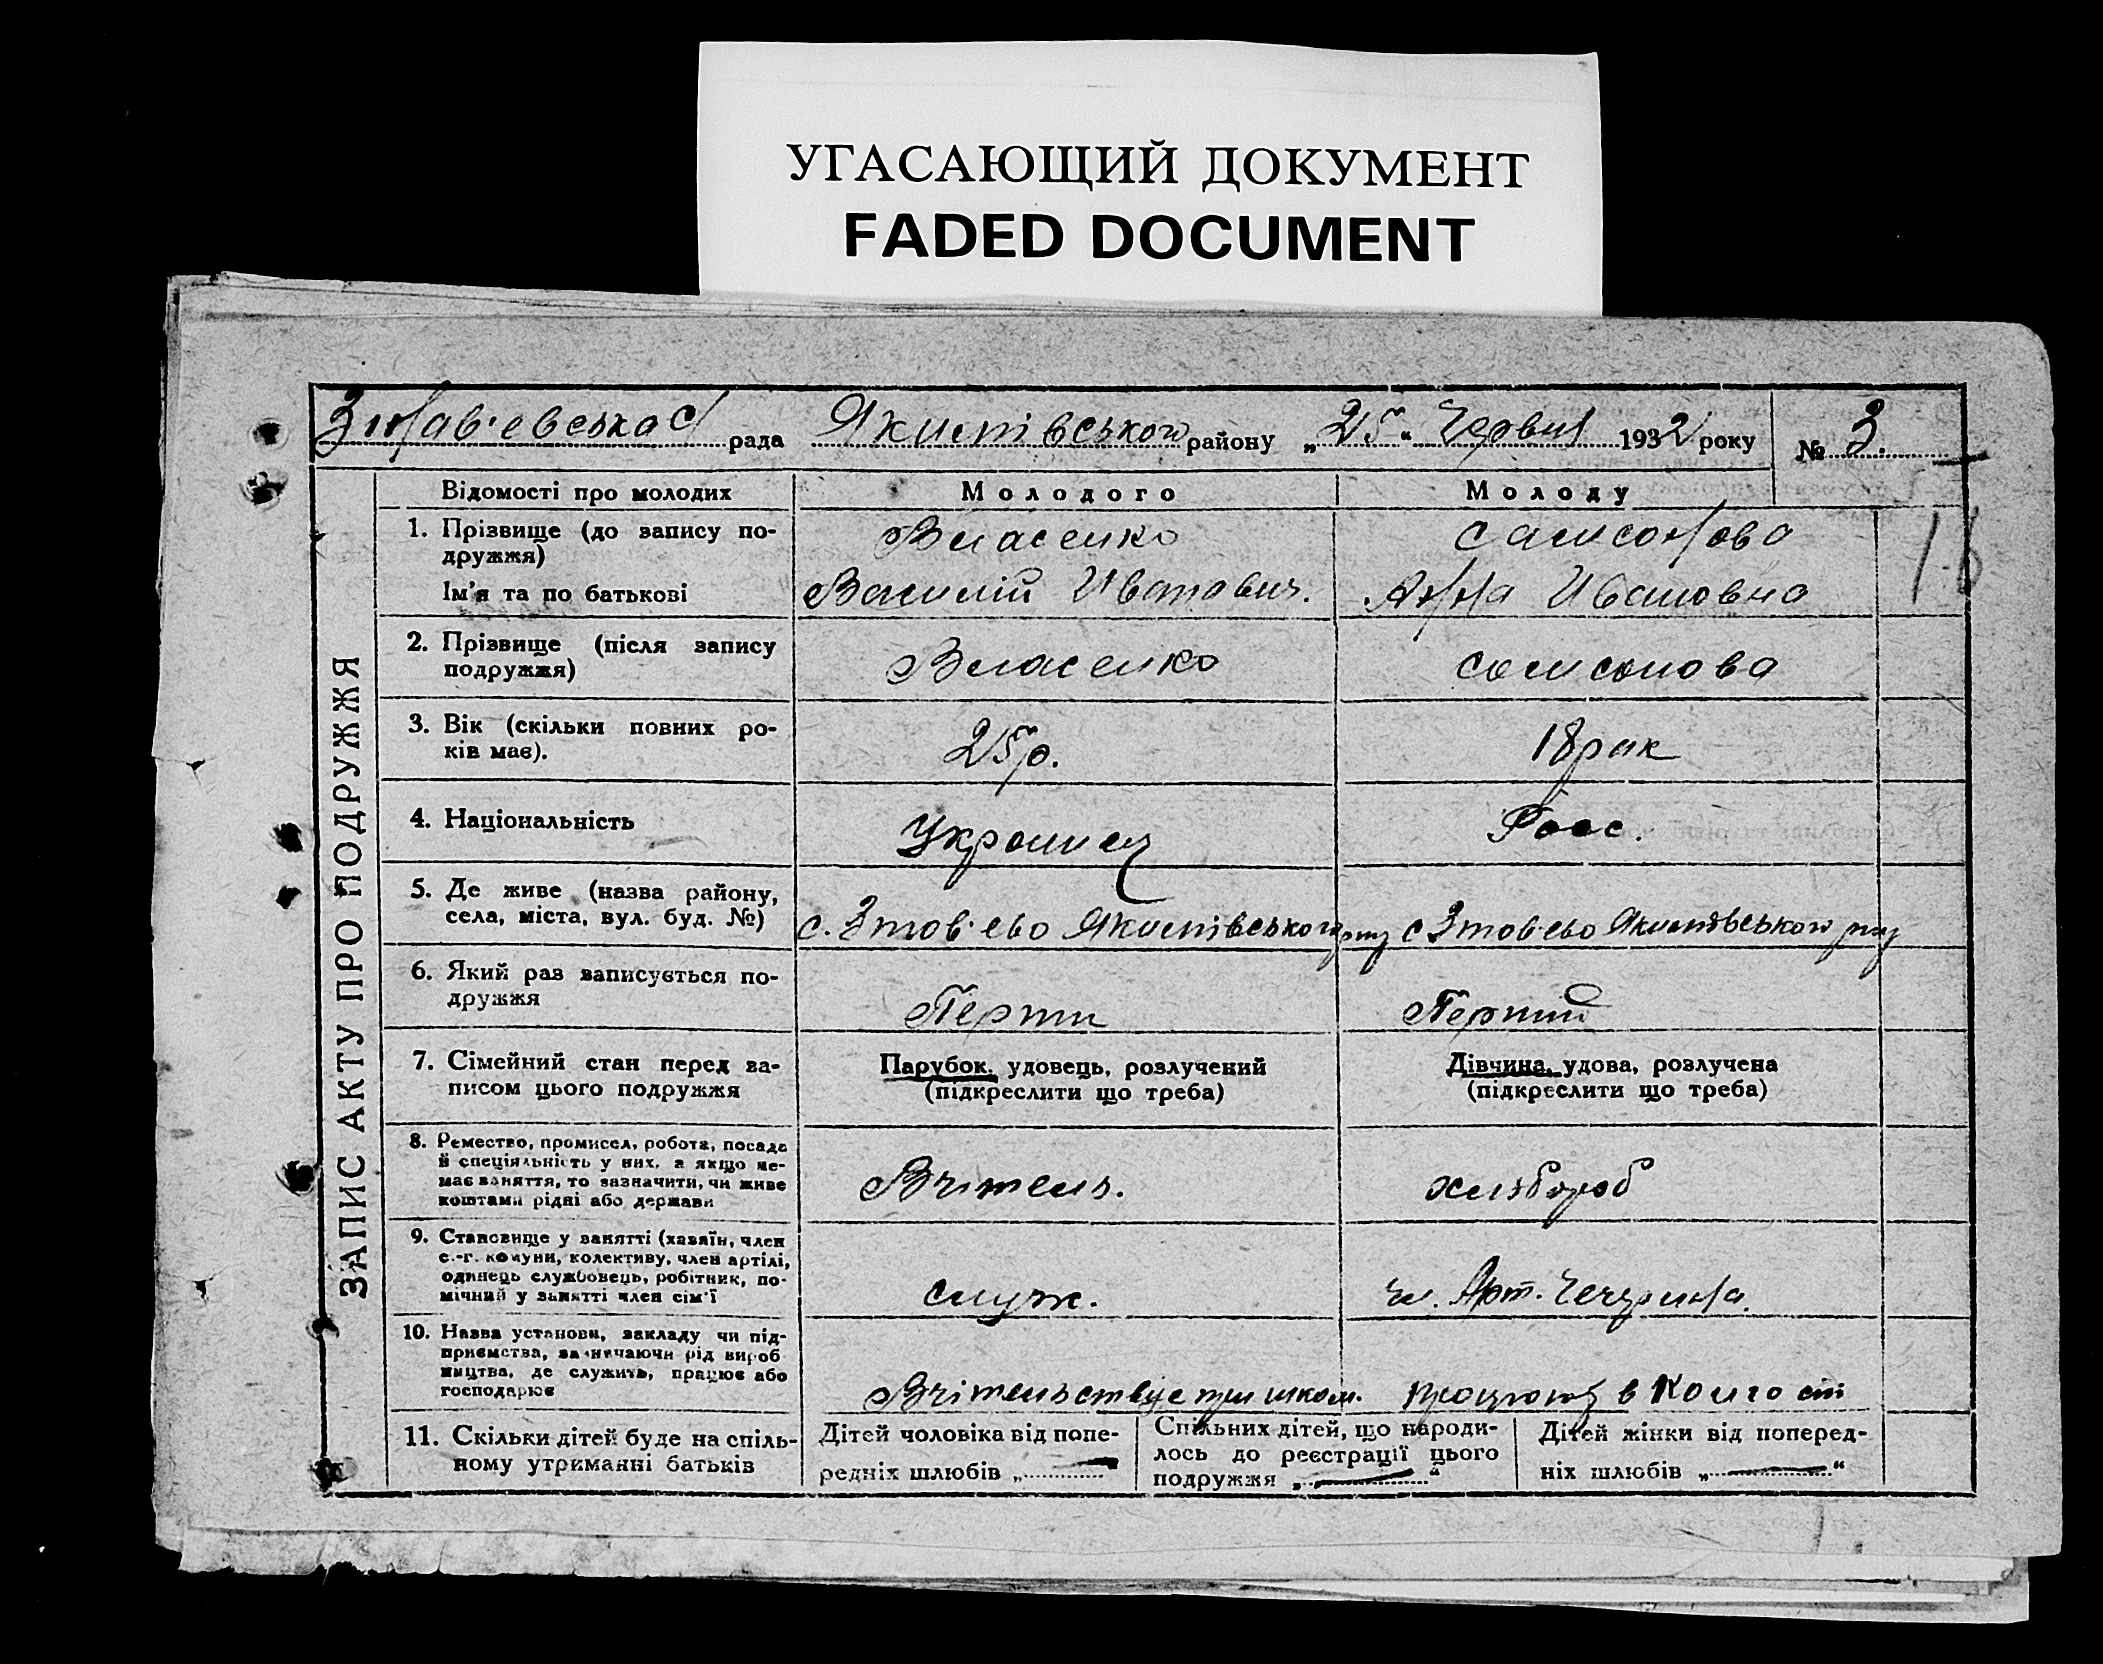 УГАСАЮЩИЙ ДОКУМЕНТ
FADED DOCUMENT
рада Якимівського району „25“ Червня 1932 року № 3.
ЗАПИС АКТУ ПРО ПОДРУЖЖЯ
Відомості про молодих
Молодого
Молоду
1. Прізвище (до запису по-
дружжя)
Власенко
Самсонова
Ім'я та по батькові
Василій Иванович.
Анна Ивановна
2. Прізвище (після запису
подружжя)
Власенко
Самсонова
3. Вік (скільки повних ро-
ків має).
25 р.
18 рок
4. Національність
Украинец
Росс.
5. Де живе (назва району,
села, міста, вул. буд. №)
с. Якимівського рну
с Якимівського рну
6. Який раз записується по-
дружжя
Перши
Перший
7. Сімейний стан перед за-
писом цього подружжя
Парубок, удовець, розлучений
(підкреслити що треба)
Дівчина, удова, розлучена
(підкреслити що треба)
8. Ремество, промисел, робота, посада
й спеціяльність у них, а якщо не-
має заняття, то зазначити, чи живе
коштами рідні або держави
Вчітель.
хлібороб
9. Становище у занятті (хазяїн, член
с.-г. комуни, колективу, член артілі,
одинець службовець, робітник, по-
мічний у занятті член сім'ї
служ.
чл. Арт.
10. Назва установи, закладу чи під-
приємства, зазначаючи рід вироб
ництва, де служить, працює або
господарює
Вчітельствує при школі.
в
11. Скільки дітей буде на спіль-
ному утриманні батьків
Дітей чоловіка від попе-
редніх шлюбів „ — “
Спільних дітей, що народи-
лось до реєстрації цього
подружжя „ — “
Дітей жінки від поперед-
ніх шлюбів „ — “